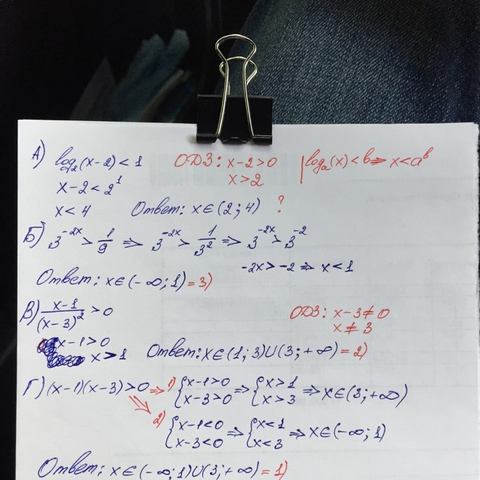 А) log₂(x-2)<1 ОДЗ: x-2>0 | logₐ(x)<b⇒ x<aᵇ
x-2<2¹ x>2
x<4 Ответ: x∈(2;4) ?
Б) 3⁻²ˣ>1/9 ⇒ 3⁻²ˣ>1/3² ⇒ 3⁻²ˣ>3⁻²
-2x>-2 ⇒ x<1
Ответ: x∈(-∞;1)=3)
В) (x-1)/(x-3)²>0 ОДЗ: x-3≠0
x-1>0 x≠3
x>1 Ответ: x∈(1;3)U(3;+∞)=2)
Г) (x-1)(x-3)>0 ⇒ 1) {x-1>0 ⇒ {x>1 ⇒ x∈(3;+∞)
x-3>0 x>3
2) {x-1<0 ⇒ {x<1 ⇒ x∈(-∞;1)
x-3<0 x<3
Ответ: x∈(-∞;1)U(3;+∞)=1)